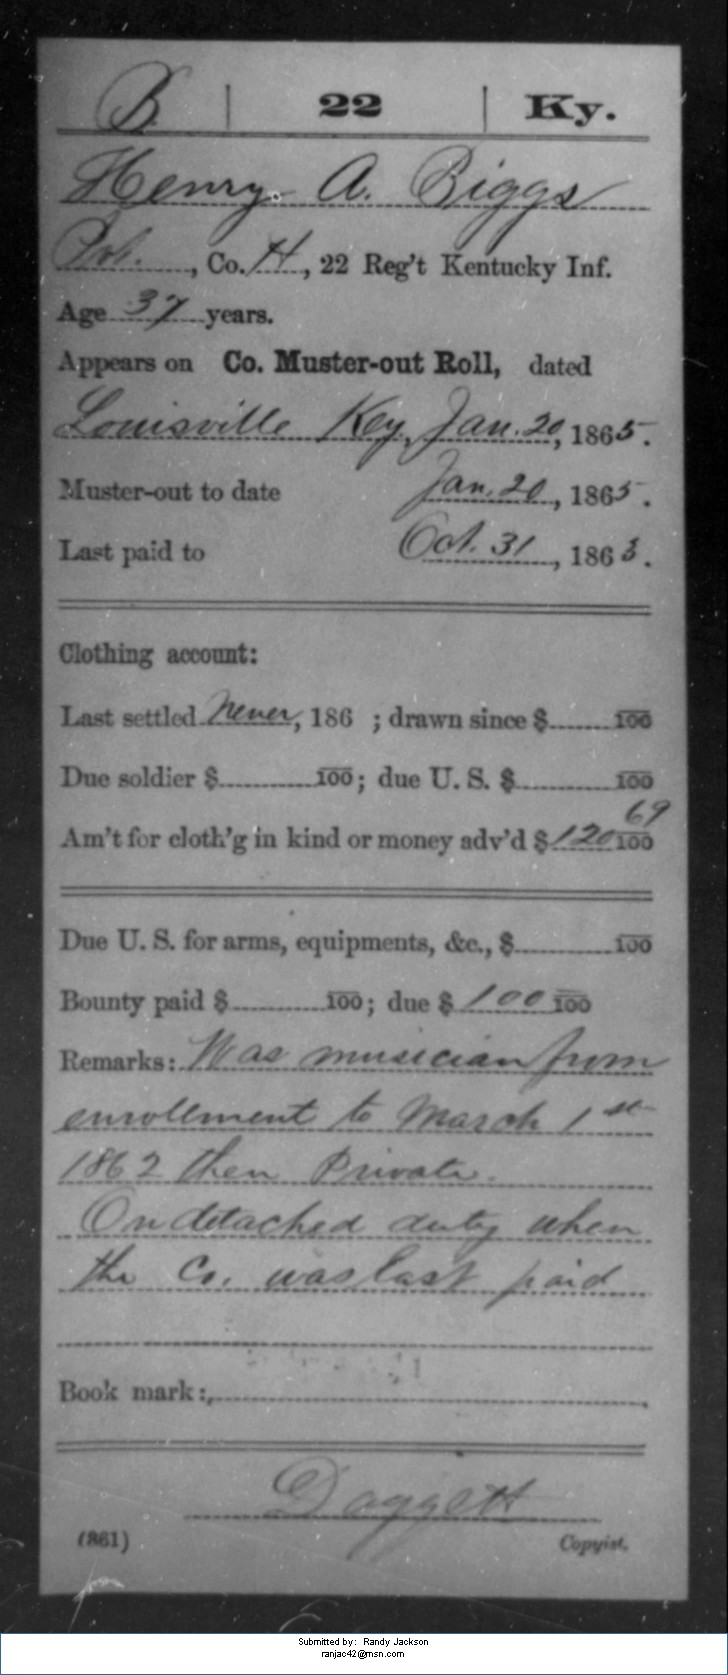 B. | 22 | Ky.
Henry A. Biggs
Pvt., Co. H, 22 Reg't Kentucky Inf.
Age 37 years.
Appears on Co. Muster-out Roll, dated
Louisville Key, Jan. 20, 1865.
Muster-out to date Jan. 20, 1865.
Last paid to Oct. 31, 1863.
Clothing account:
Last settled never, 186 ; drawn since $ 100
Due soldier $ 100; due U. S. $ 100
Am't for cloth'g in kind or money adv'd $ 120 69/100
Due U. S. for arms, equipments, &c., $ 100
Bounty paid $ 100; due $ 100 100
Remarks: Was musician from
enrollment to March 1st
1862 then Private.
On detached duty when
the Co. was last paid
Book mark:
Doggett
(861) Copyist.
Submitted by: Randy Jackson
ranjac42@msn.com